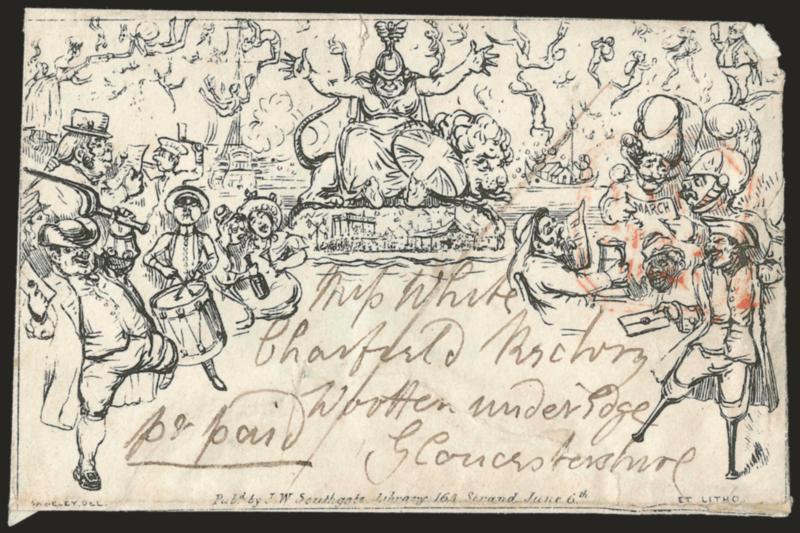 MARCH
Miss White
Charfield Rectory
Wootten under Edge
pr paid
Gloucestershire
Pubd. by J. W. Southgate Library 164 Strand June 6th
DEL.
ET LITHO.